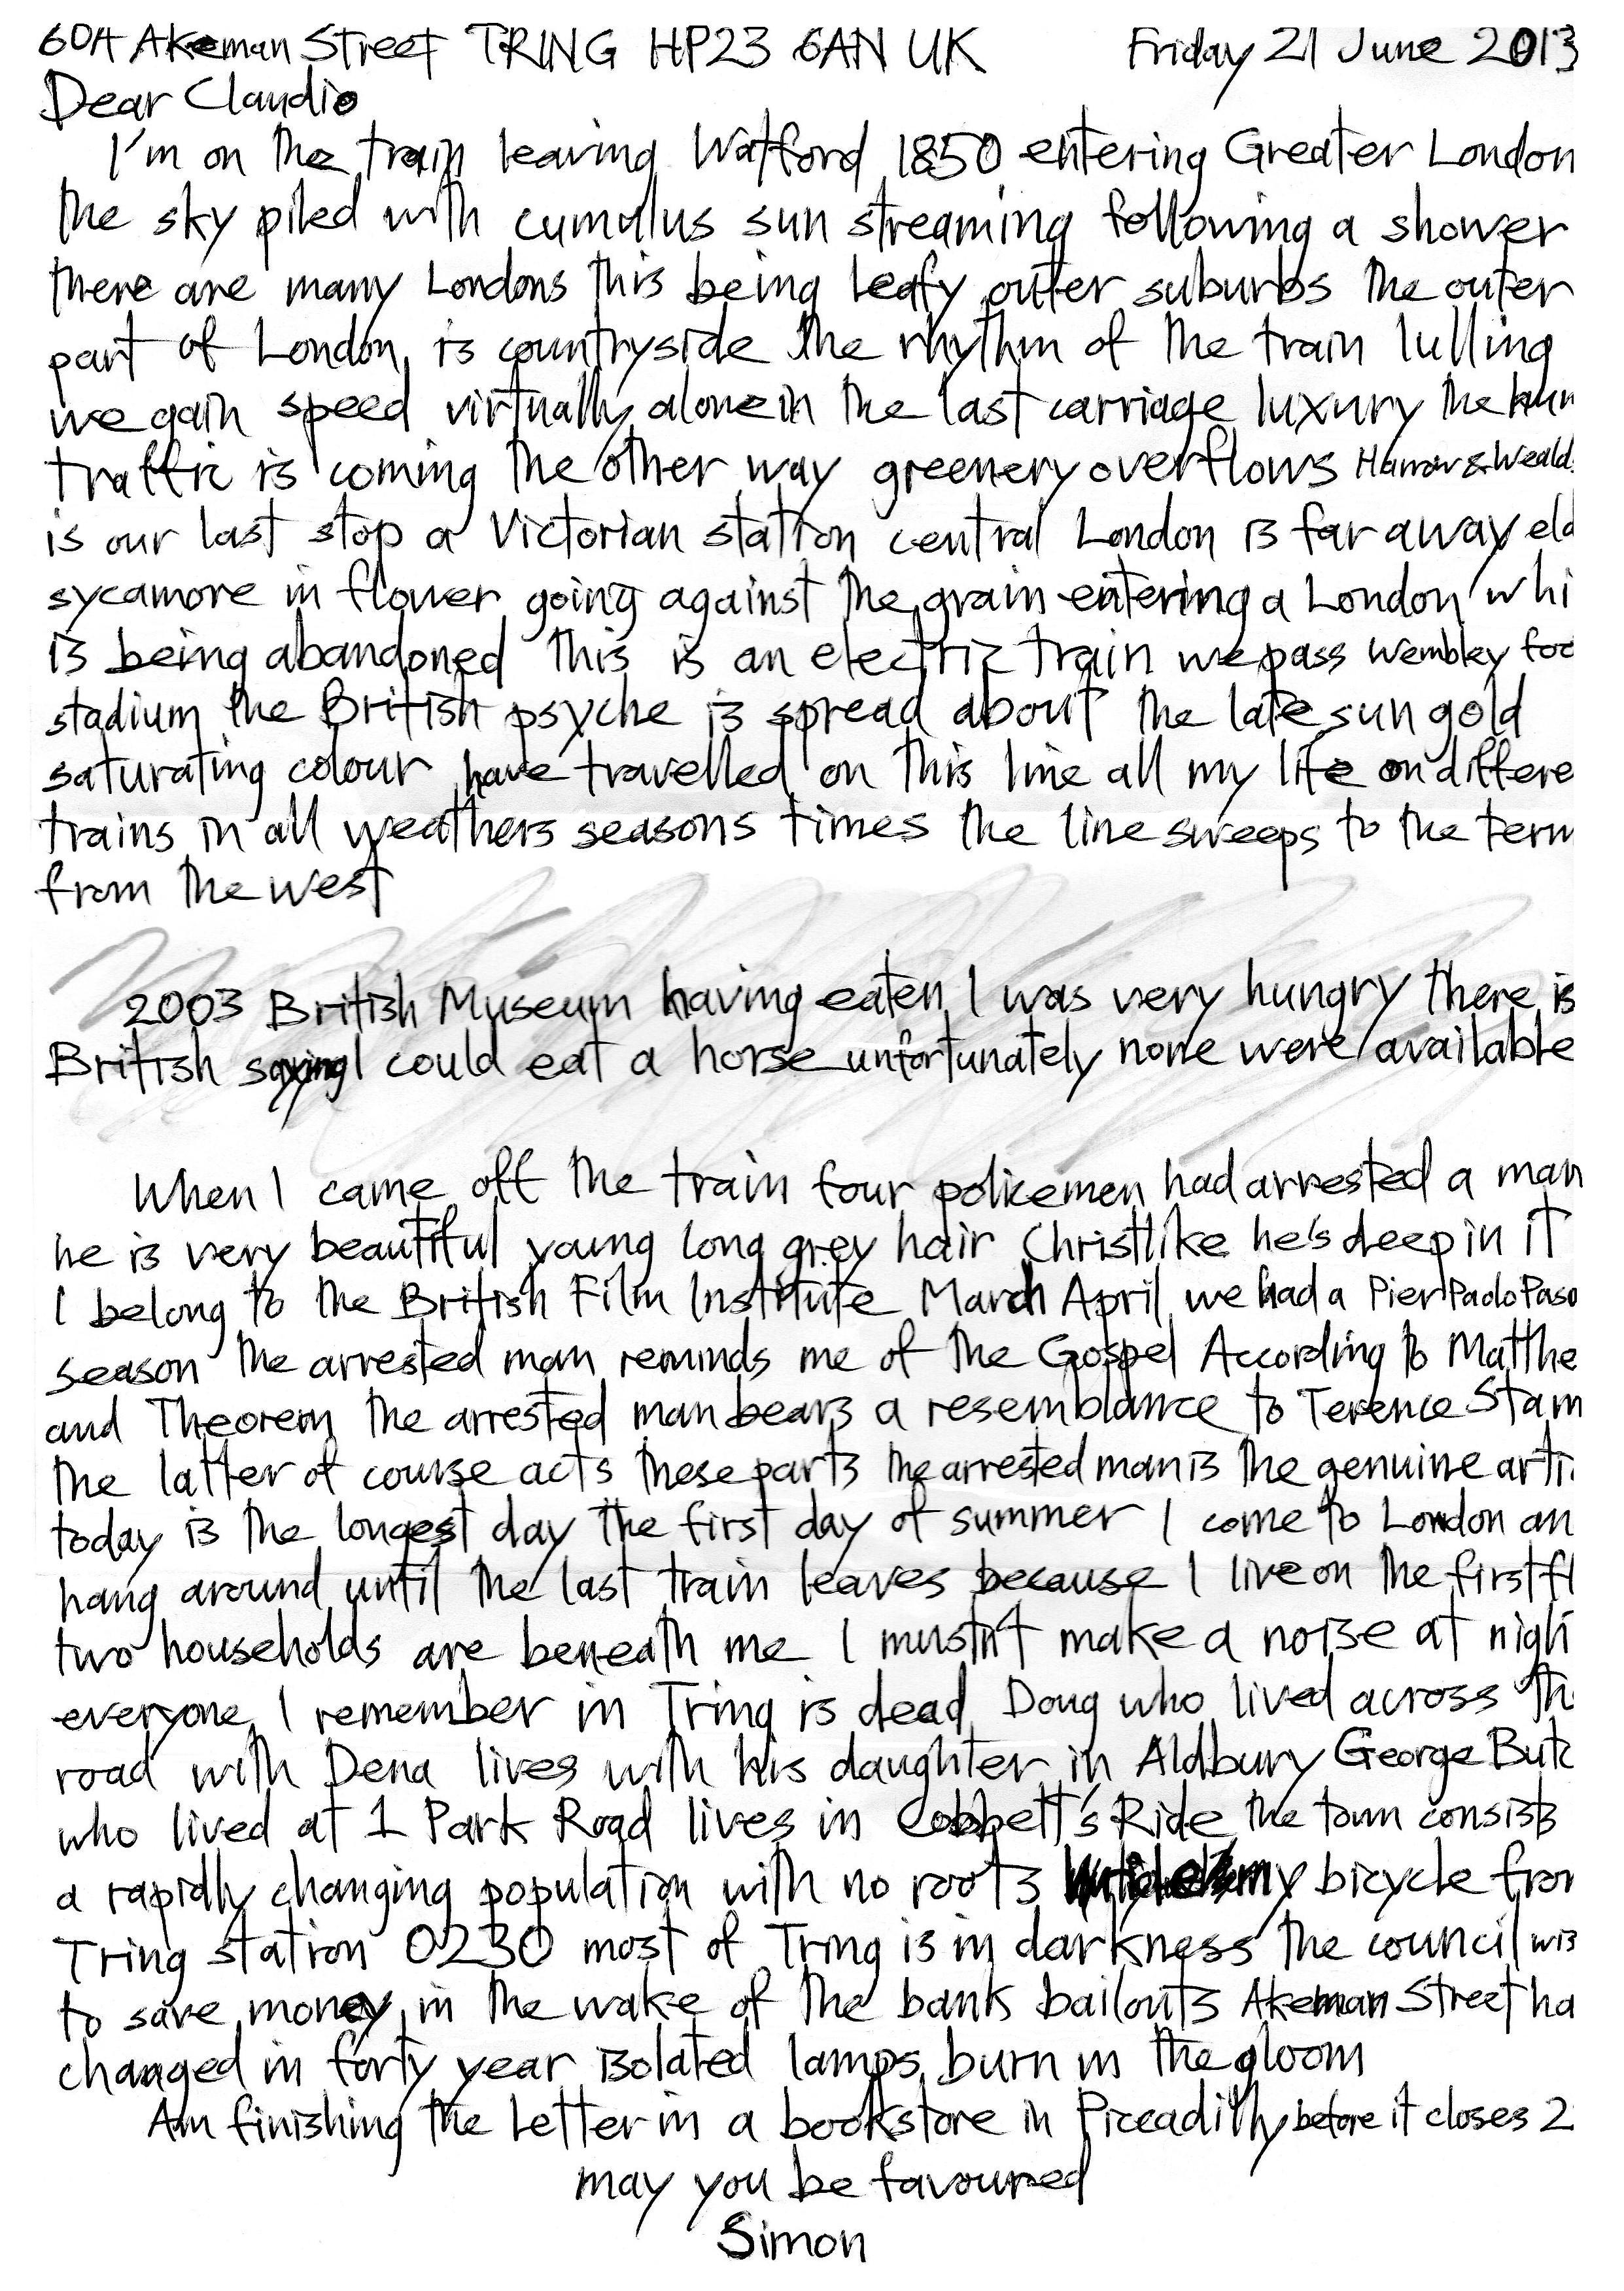 60A Akeman Street TRING HP23 6AN UK Friday 21 June 2013
Dear Claudio
I'm on the train leaving Watford 1850 entering Greater London
the sky piled with cumulus sun streaming following a shower
there are many Londons this being leafy outer suburbs the outer
part of London is countryside the rhythm of the train lulling
we gain speed virtually alone in the last carriage luxury the
traffic is coming the other way greenery overflows Harrow & Weald
is our last stop a Victorian station central London is far away eld
sycamore in flower going against the grain entering a London whi
is being abandoned this is an electric train we pass Wembley foo
stadium the British psyche is spread about the late sun gold
saturating colour have travelled on this line all my life on differe
trains in all weathers seasons times the line sweeps to the term
from the west
2003 British Museum having eaten I was very hungry there is
British saying I could eat a horse unfortunately none were available
When I came off the train four policemen had arrested a man
he is very beautiful young long grey hair Christlike he's deep in it
I belong to the British Film Institute March April we had a Pier Paolo Paso
season the arrested man reminds me of the Gospel According to Matthe
and Theorem the arrested man bears a resemblance to Terence Stam
the latter of course acts these parts the arrested man is the genuine arti
today is the longest day the first day of summer I come to London an
hang around until the last train leaves because I live on the first fl
two households are beneath me I mustn't make a noise at nigh
everyone I remember in Tring is dead Doug who lived across th
road with Dena lives with his daughter in Aldbury George Butc
who lived at 1 Park Road lives in Cobbett's Ride the town consists
a rapidly changing population with no roots my bicycle from
Tring station 0230 most of Tring is in darkness the council wis
to save money in the wake of the bank bailouts Akeman Street ha
changed in forty year isolated lamps burn in the gloom
Am finishing the letter in a bookstore in Piccadilly before it closes 2
may you be favoured
Simon